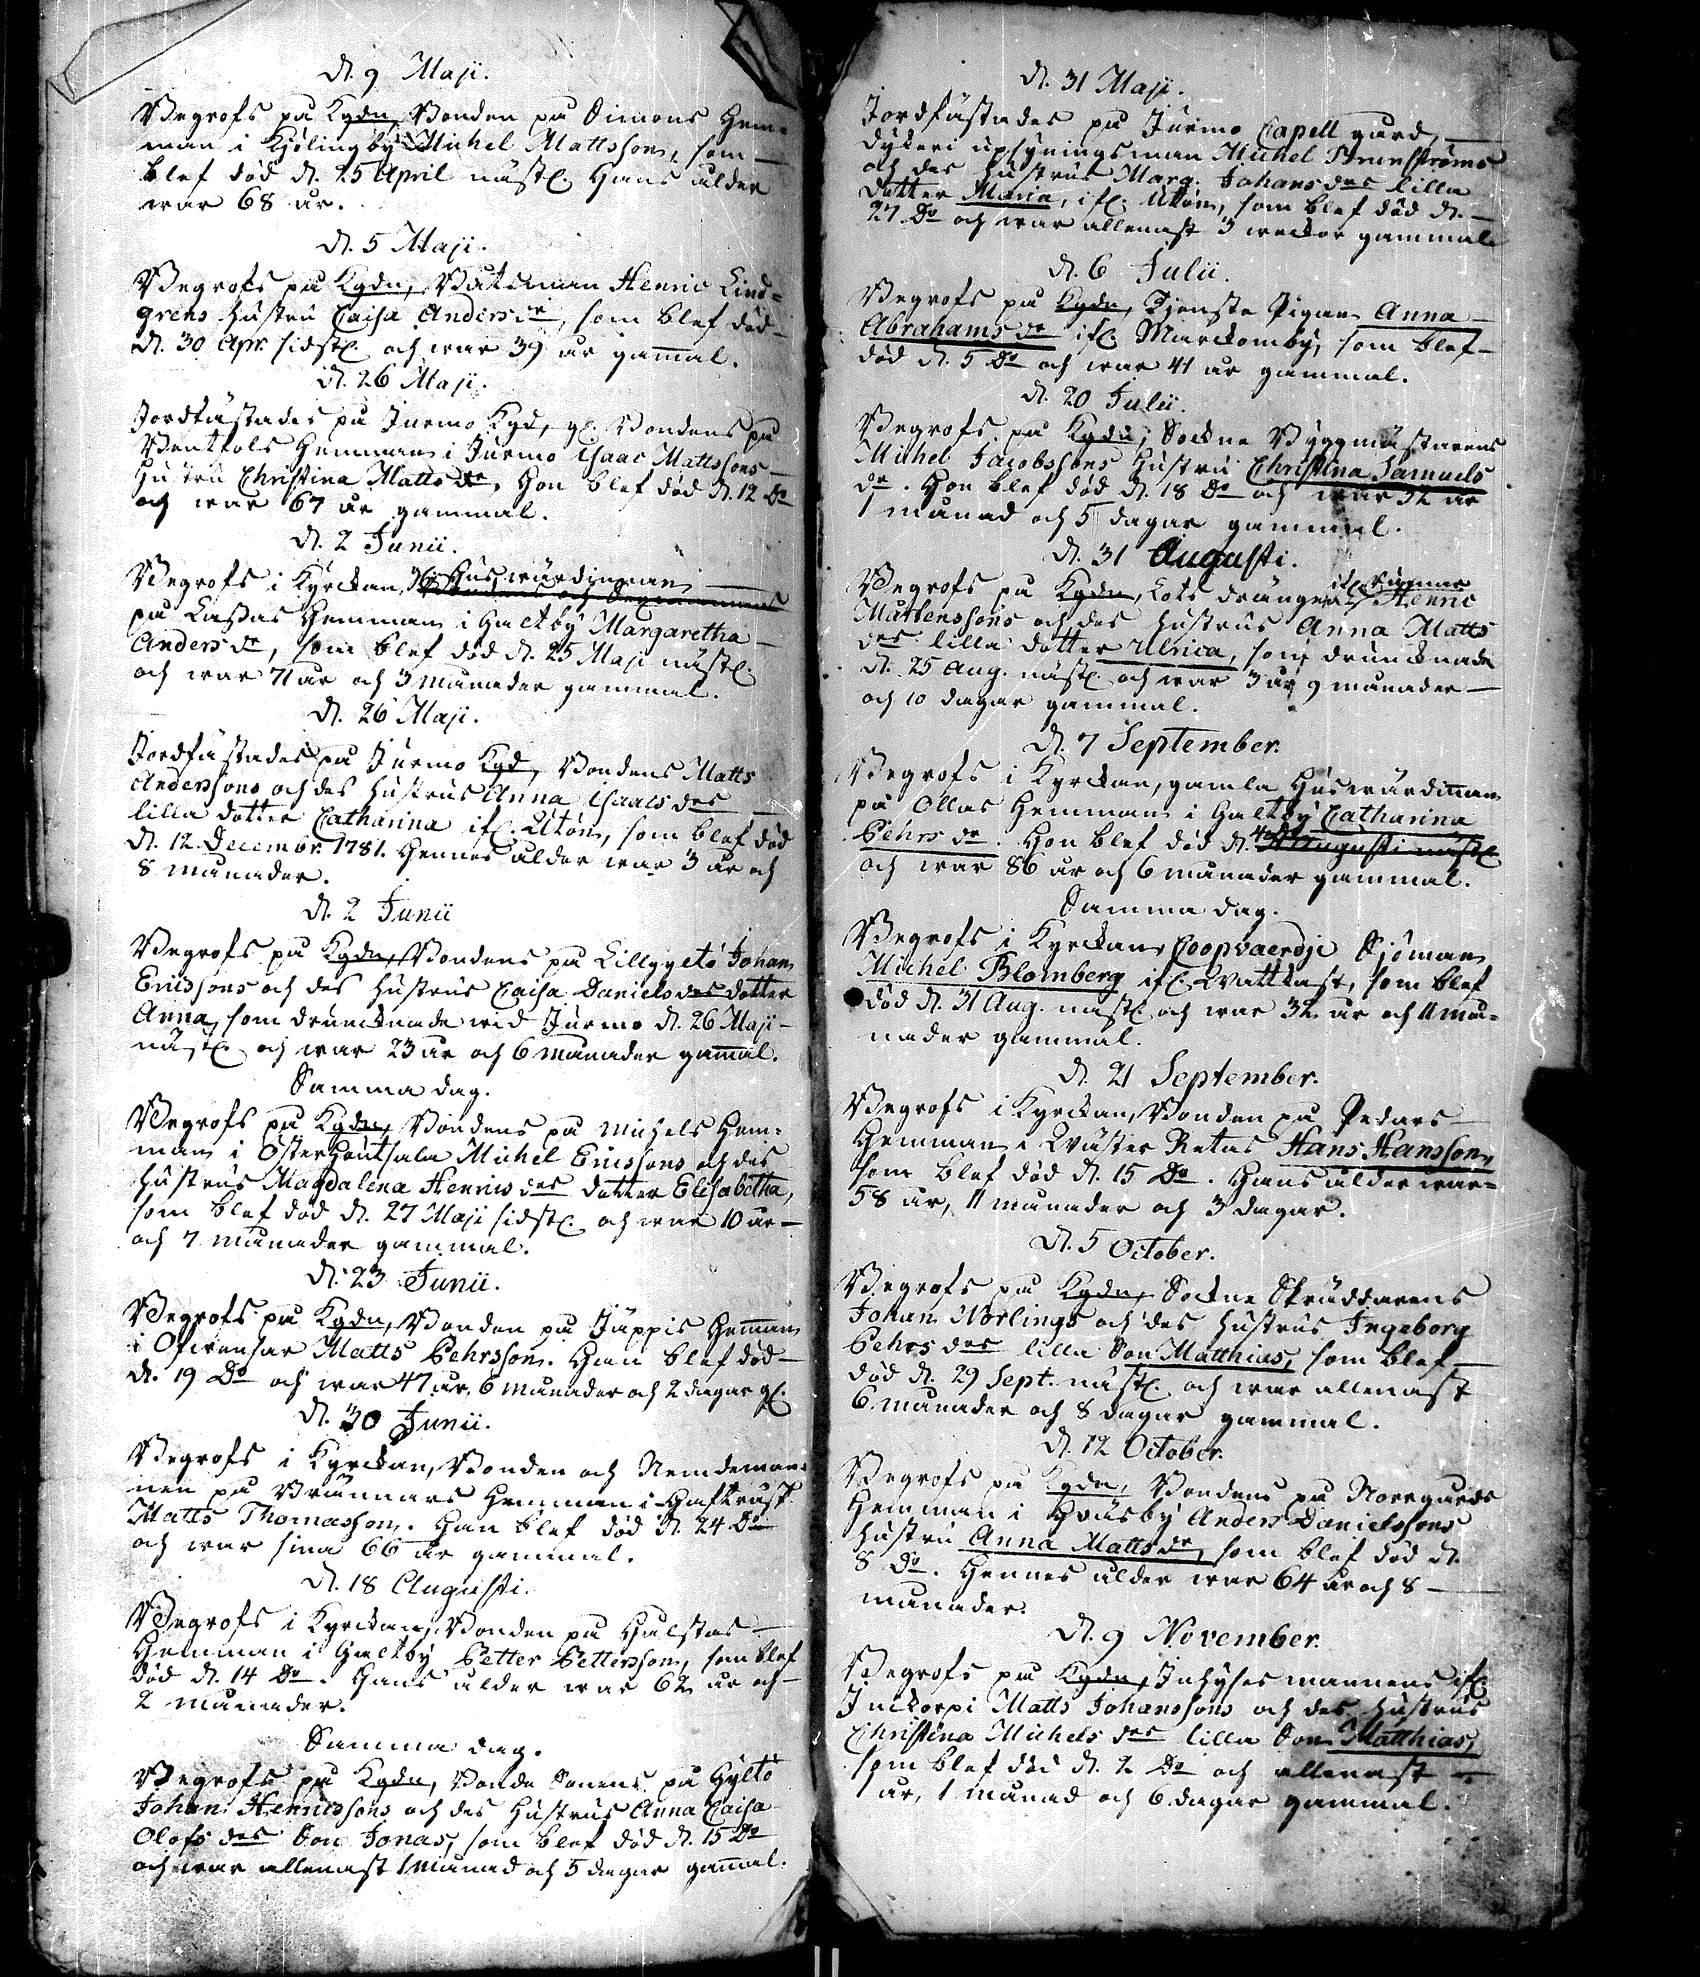 D. 9 Maji.
Begrofs på Kgdn, Bonden på Simons Hem-
man i Kjölingby Michel Mattsson, som
blef död d. 25 April nästl. Hans ålder
war 68 år.
D. 5 Maji.
Begrofs på Kgdn, Båtsman Henric Lind=
grens hustru Caisa Andersdr, som blef död
d. 30 Apr. sidstl. och war 39 år gam̅al.
D. 26 Maji.
Jordfästades på Jurmo Kgd, gl. Bondens på
Hemman i Jurmo Isaac Mattssons
Hustru Christina Mattsdr, Hon blef död d. 12 Do
och war 67 år gammal.
D. 2 Junii.
Begrofs i Kyrckan, gl. Huswärdinnan
på Lassas Hemman i Galtby Margaretha
Andersdr, som blef död d. 25 Maji nästl.
och war 71 år och 3 månader gammal.
D. 26 Maji.
Jordfästades på Jurmo Kgd, Bondens Matts
Anderssons och des hustrus Anna Isaacsdrs
lilla dotter Catharina ifl. Utön, som blef död
d. 12 Decembr. 1781. Hennes ålder war 3 år och
8 månader.
D. 2 Junii
Begrofs på Kgdn, Bondens på Lillgyltö Johan
Ericssons och des hustrus Caisa Danielsdrs dotter
Anna, som drunknade wid Jurmo d. 26 Maji
nästl. och war 23 år och 6 månader gam̅al.
Samma dag.
Begrofs på Kgdn, Bondens på Michels Hem=
man i Österhoutsala Michel Ericssons och des
hustrus Magdalena Henricsdrs dotter Elisabetha,
som blef död d. 27 Maji sidstl. och war 10 år
och 7 månader gammal.
D. 23 Junii.
Begrofs på Kgdn, Bonden på Jäppis Hem̅an
i Ofwensar Matts Pehrsson. Han blef död
d. 19 Do och war 47 år, 6 månader och 2 dagar gl.
D. 30 Junii.
Begrofs i Kyrckan, Bonden och Nemdeman-
nen på Brännars Hemman i Haftrust
Matts Thomasson. Han blef död d. 24 Do
och war sina 66 år gammal.
D. 18 Augusti.
Begrofs i Kyrckan, Bonden på Hulstas
Hemman i Galtby Petter Pettersson, som blef
död d. 14 Do. Hans ålder war 62 år och
2 månader.
Samma dag.
Begrofs på Kgdn, Bonde Sonens på Gyltö
Johan Henricssons och des Hustrus Anna Caisa
Olofsdrs Son Jonas, som blef död d. 15 Do
och war allenast 1 månad och 5 dagar gam̅al.
D. 31 Maji.
Jordfästades på Jurmo Capell gård,
dykeri upsyningsman Michel Brunströms
och des hustrus Marg. Johansdrs lilla
dotter Maria, ifl. Utön, som blef död d.
27 Do och war allenast 3 weckor gammal.
D. 6 Julii.
Begrofs på Kgdn, Tjenste Pigan Anna
Abrahamsdr ifl. Marckomby, som blef
död d. 5 Do och war 41 år gammal.
D. 20 Julii.
Begrofs på Kgdn, Sockne Byggmästarens
Michel Jacobssons hustru Christina Samuels
dr. Hon blef död d. 18 Do och war 32 år
1 månad och 5 dagar gammal.
D. 31 Augusti.
Begrofs på Kgdn, Lots drängens Henric
Mårtenssons och des hustrus Anna Matts
drs lilla dotter Ulrica, som drunknade
d. 25 Aug. nästl. och war 3 år 9 månader
och 10 dagar gammal.
D. 7 September.
Begrofs i Kyrckan, gamla Huswärdin̅an
på Ollas Hemman i Galtby Catharina
Pehrsdr. Hon blef död d. 4 Augusti nästl.
och war 86 år och 6 månader gammal.
Samma dag.
Begrofs i Kyrckan, Coopvaerdje Sjöman
Michel Blomberg ifl. Wattkast, som blef
död d. 31 Aug. nästl. och war 32 år och 11 må=
nader gammal.
D. 21 September.
Begrofs i Kyrckan, Bonden på Pedars
Hemman i Wäster Retais Hans Hansson,
som blef död d. 15 Do. Hans ålder war=
58 år, 11 månader och 3 dagar.
D. 5 October.
Begrofs på Kgdn, Sockne Skräddarens
Johan Norlings och des hustrus Ingeborg
Pehrsdrs lilla Son Matthias, som blef
död d. 29 Sept. nästl. och war allenast
6 månader och 8 dagar gammal.
D. 12 October.
Begrofs på Kgdn, Bondens på Norrgårds
Hemman i Hväsby Anders Danielssons
hustru Anna Mattsdr, som blef död d.
8 Do. Hennes ålder war 64 år och 8
månader.
D. 9 November.
Begrofs på Kgdn, Inhyses mannens ifl.
Inickorpi Matts Johanssons och des hustrus
Christina Michelsdrs lilla Son Matthias,
som blef död d. 2 Do och allenast
1 år, 1 månad och 6 dagar gammal.